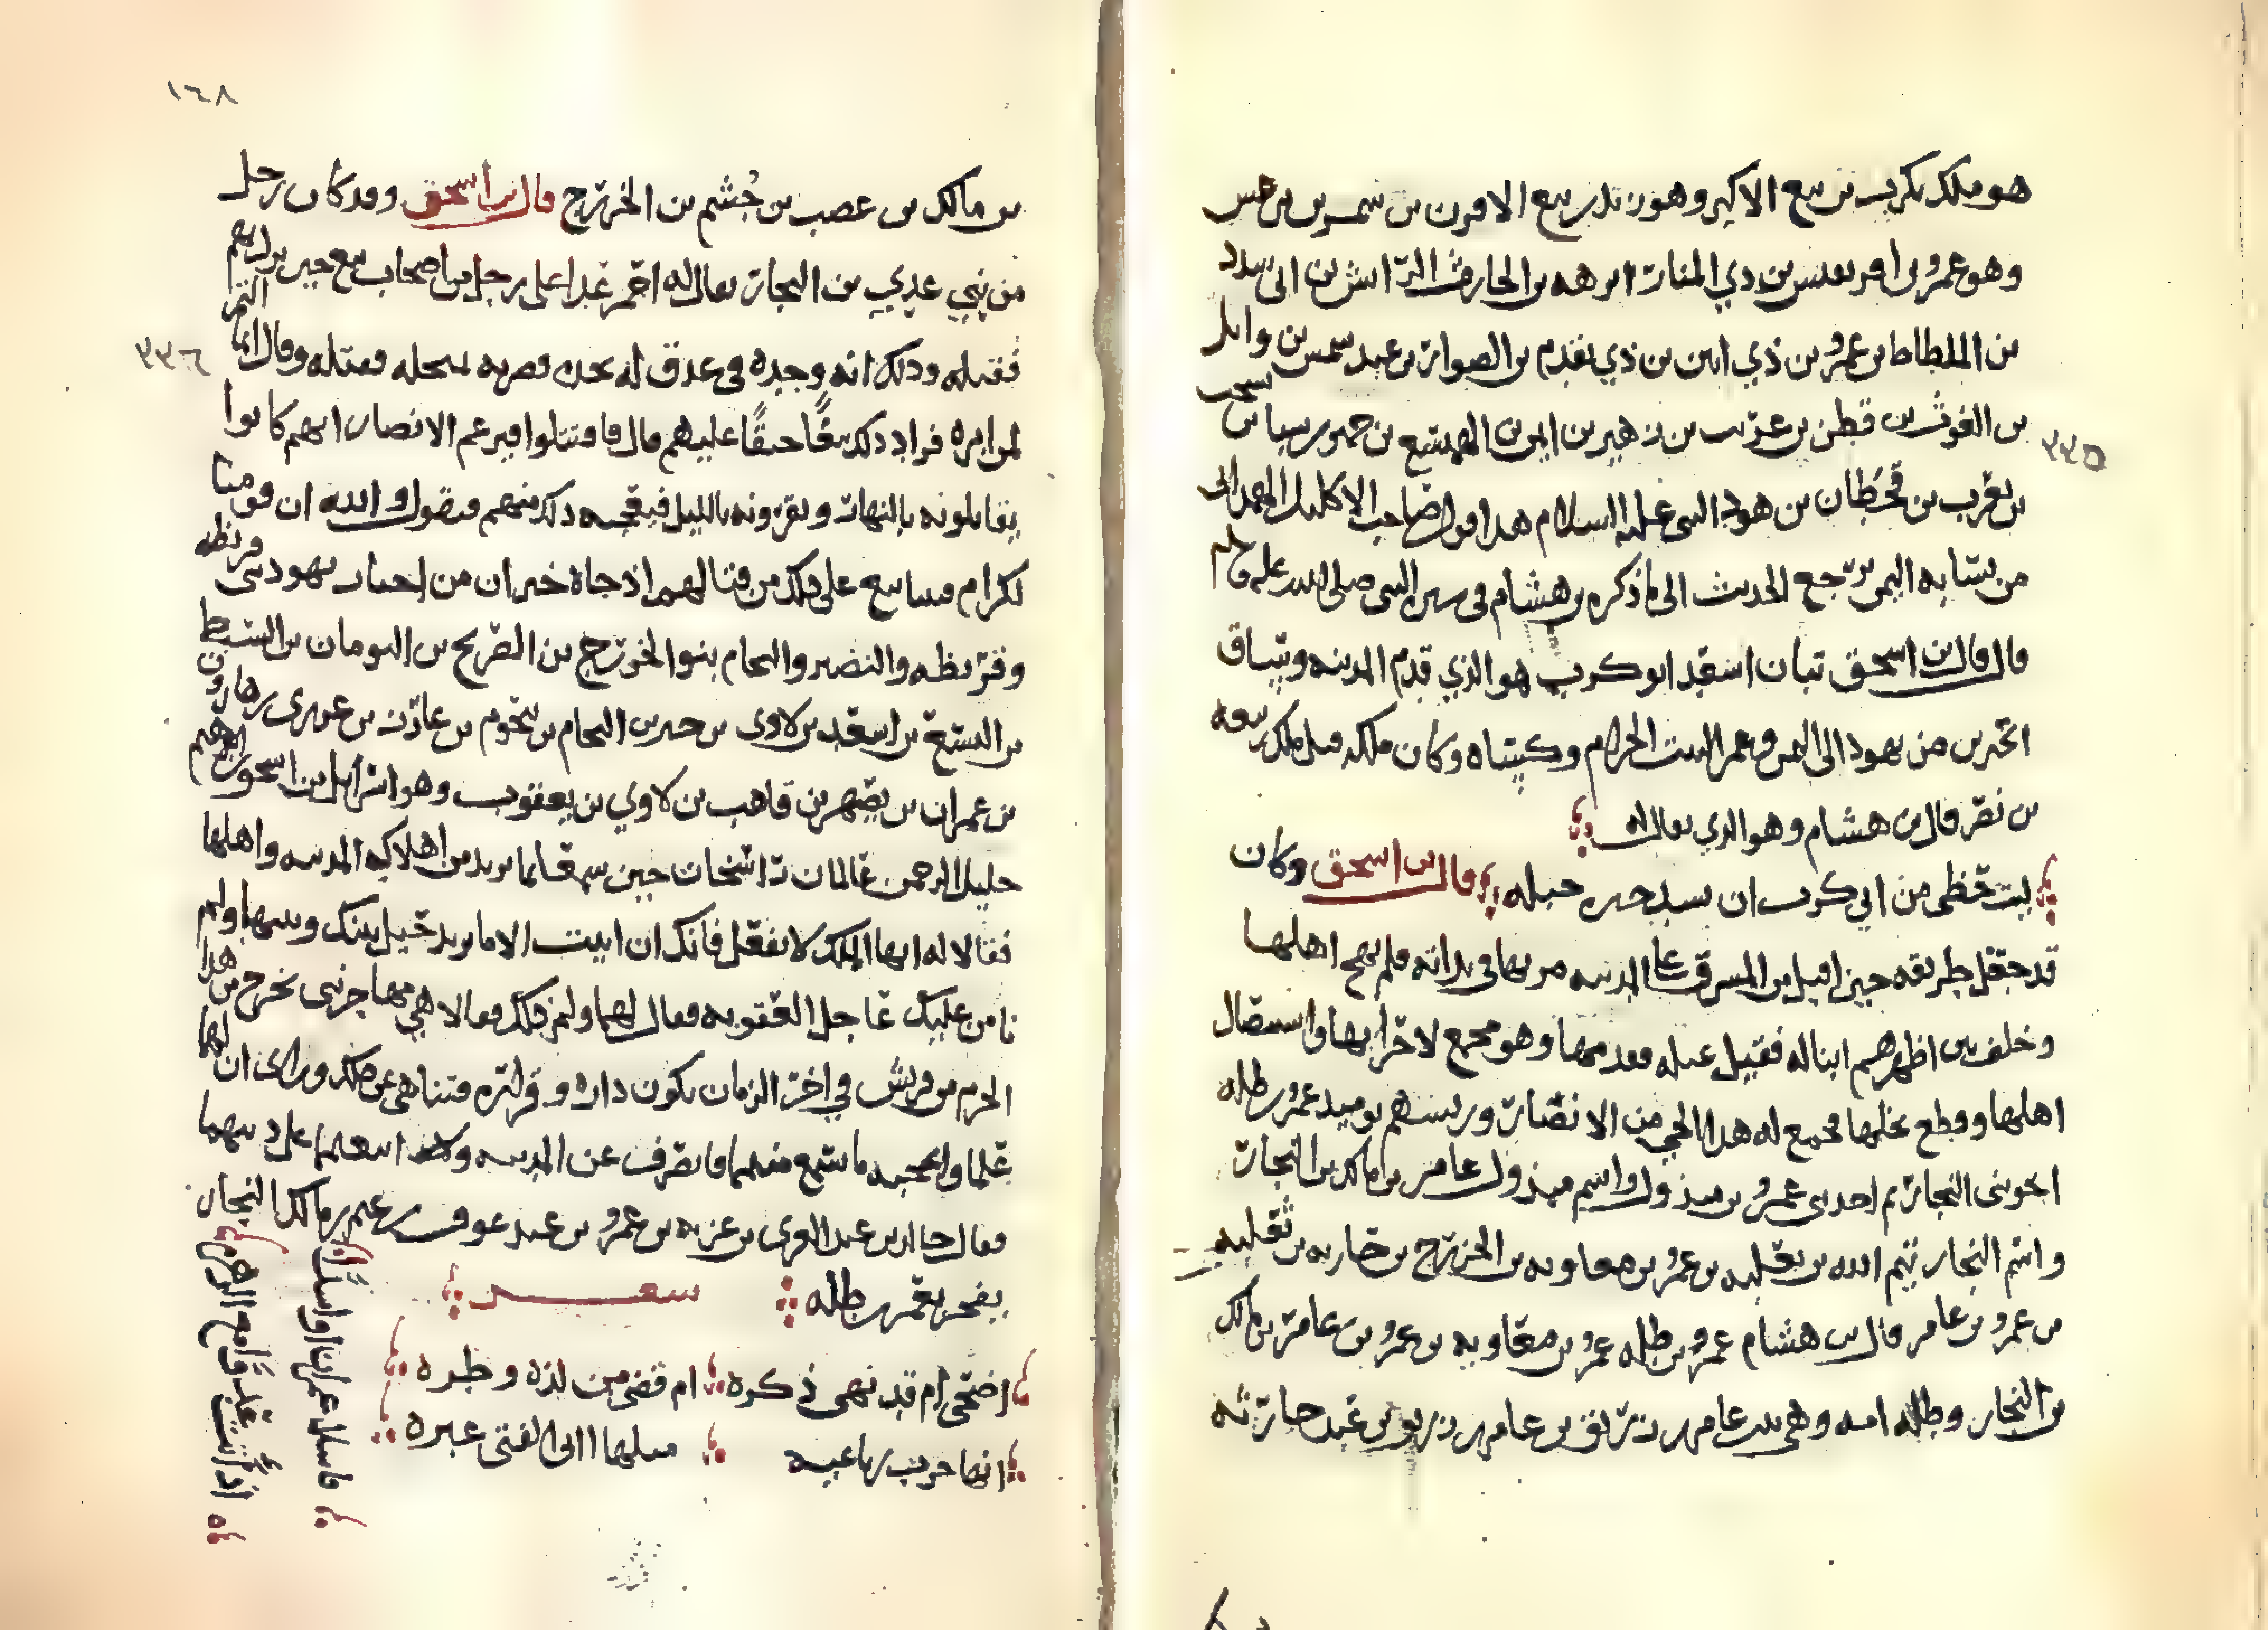 هو ملكيكرب بن تبع الاكبر وهو زيد بن تبع الاقرن بن شمر يرعش
وهو عمرو بن افريقيس بن ذي المنار ابرهه بن الحارث الرائش بن الى سدد
بن الملطاط بن عمرو بن ذي ابين بن ذي يقدم بن الصوار بن عبد شمس بن وائل
بن الغوث بن قطن بن عريب بن زهير بن ايمن بن الهميسع بن حمير بن سبا بن يشجب
٣٣٥
بن يعرب بن قحطان بن هود النبي عليه السلام هذا قول صاحب الاكليل الهمداني
من نسابه اليمن يرجع الحديث الى ما ذكره بن هشام في سيرة النبي صلى الله عليه وسلم
قال قال بن اسحق تبان اسعد ابو كرب هو الذي قدم المدينه وساق
الحبرين من يهود الى اليمن وعمر البيت الحرام وكساه وكان ملكه قبل ملك ربيعه
بن نصر قال بن هشام وهو الذي يقال له
ليت حظي من ابي كرب ان يسد خيره خبله قال بن اسحق وكان
قد جعل طريقه حين اقبل من المشرق على المدينه مر بها في بداته فلم يهج اهلها
وخلف بين اظهرهم ابنا له فقتل غيله فقدمها وهو مجمع لاخرابها واستيصال
اهلها وقطع نخلها فجمع له هذا الحي من الانصار وريسهم يوميذ عمرو بن طله
اخو بني النجار ثم احد بني عمرو بن مبذول واسم مبذول عامر بن مالك بن النجار
واسم النجار تيم الله بن ثعلبه بن عمرو بن معاويه بن الخزرج بن حارثه بن ثعلبه
بن عمرو بن عامر قال بن هشام عمرو بن طله عمرو بن معاويه بن عمرو بن عامر بن مالك
بن النجار وطله امه وهي بنت عامر بن زريق بن عامر بن زريق بن عبد حارثه
١٤٨
بن مالك بن غصب بن جُشم بن الخزرج قال بن اسحق وقد كان رجل
من بني عدي بن النجار يقال له احمر عدا على رجل من اصحاب تبع حين نزل بهم
فقتله وذلك انه وجده في عذق له يجده فضربه بمنجله فقتله وقال انما التمر
٣٣٦
لمن ابره فزاد ذلك تبعًا حنقًا عليهم قال فاقتتلوا فيزعم الانصار انهم كانوا
يقاتلونه بالنهار ويقرونه بالليل فيعجبه ذلك منهم ويقول والله ان قومنا
لكرام فبينا تبع على ذلك من قتالهم اذ جاه حبران من احبار يهود بني قريظه
وقريظه والنضير والنحام بنوا الخزرج بن الصريح بن التومان بن السبط
بن اليسع بن اسعد بن لاوى بن خير بن النحام بن تنحوم بن عازر بن عزرى بن هارون
بن عمران بن يصهر بن قاهب بن لاوي بن يعقوب وهو اسرائيل بن اسحق بن ابراهيم
خليل الرحمن عالمان راسخان حين سمعا بما يريد من اهلاك المدينه واهلها
فقالا له ايها الملك لا تفعل فانك ان ابيت الا ما تريد حيل بينك وبينها ولم
نامن عليك عاجل العقوبه فقال لهما ولم ذلك فقالا هي مهاجر نبي يخرج من هذا
الحرم من قريش في اخر الزمان تكون داره وقراره فتناهى عن ذلك وراى ان لهما
علما واعجبه ما سمع منهما فانصرف عن المدينه واتبعهما على دينهما
فقال خالد بن عبد العزى بن غزيه بن عمرو بن عبد عوف بن غنم بن مالك النجار
يفخر بعمرو بن طله شعر
اضحى ام قد نهى ذكره ام قضى من لذه وطره
انها حرب رباعيه مثلها اتى الفتى عبره
فاسلا عمران او اسدًا
اذ اتت عدوًا مع الزهره